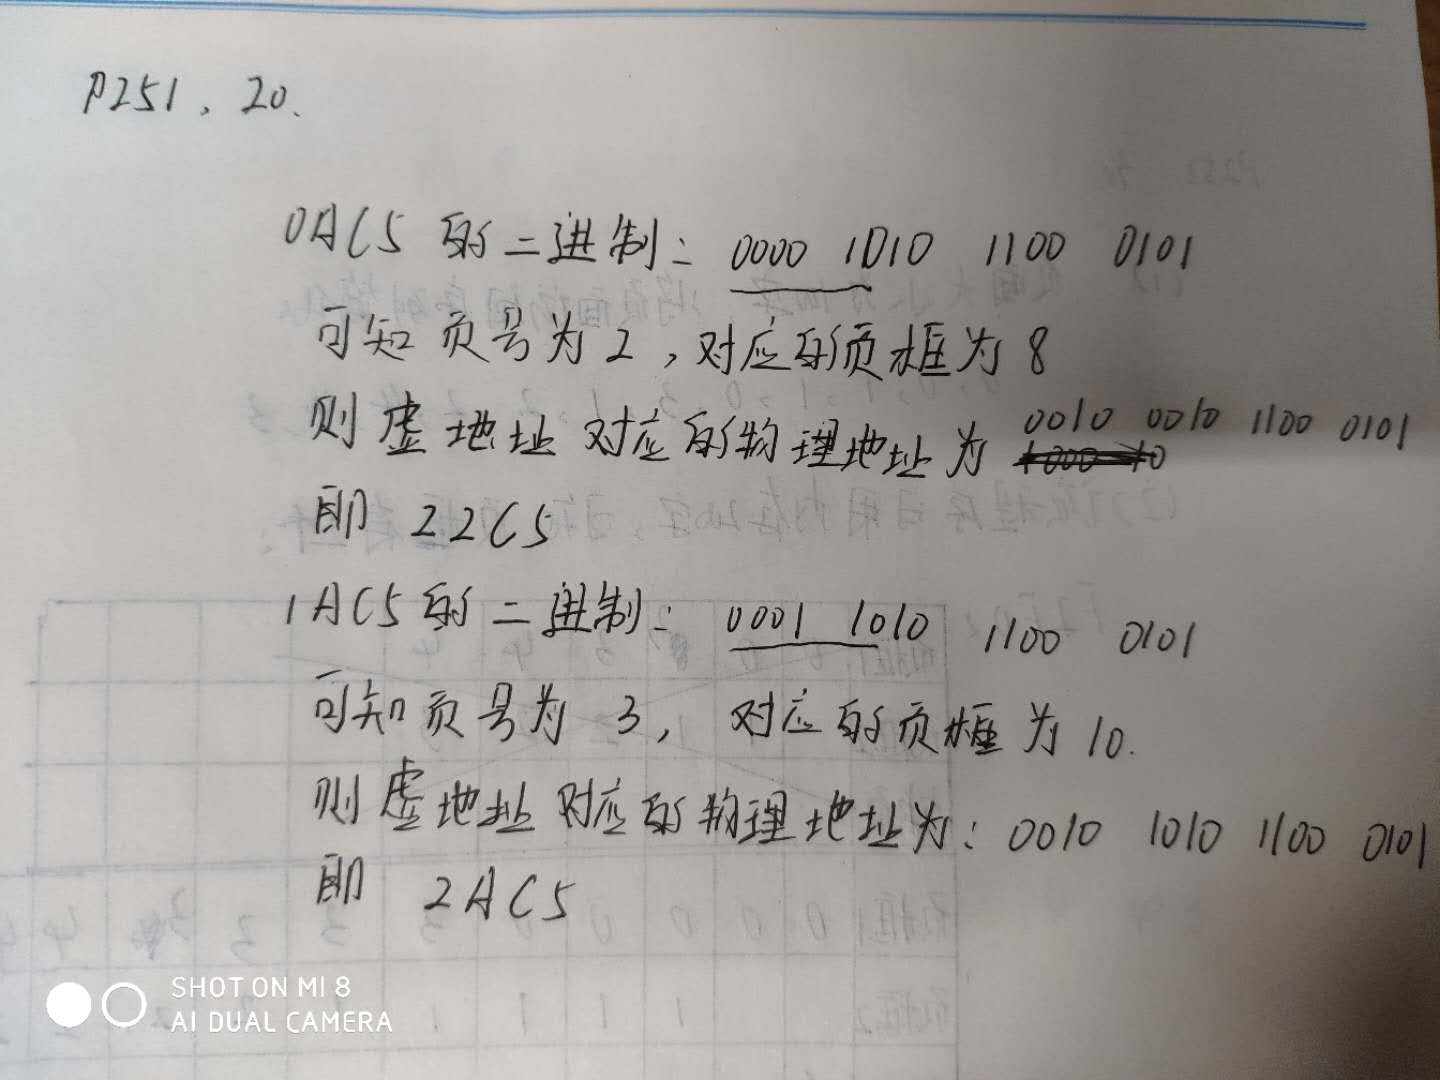 P251, 20.
0AC5 的二进制: 0000 1010 1100 0101
可知页号为2,对应的页框为8
则虚地址对应的物理地址为 0010 0010 1100 0101
即 22C5
1AC5的二进制: 0001 1010 1100 0101
可知页号为 3, 对应的页框为10.
则虚地址对应的物理地址为: 0010 1010 1100 0101
即 2AC5
SHOT ON MI 8
AI DUAL CAMERA